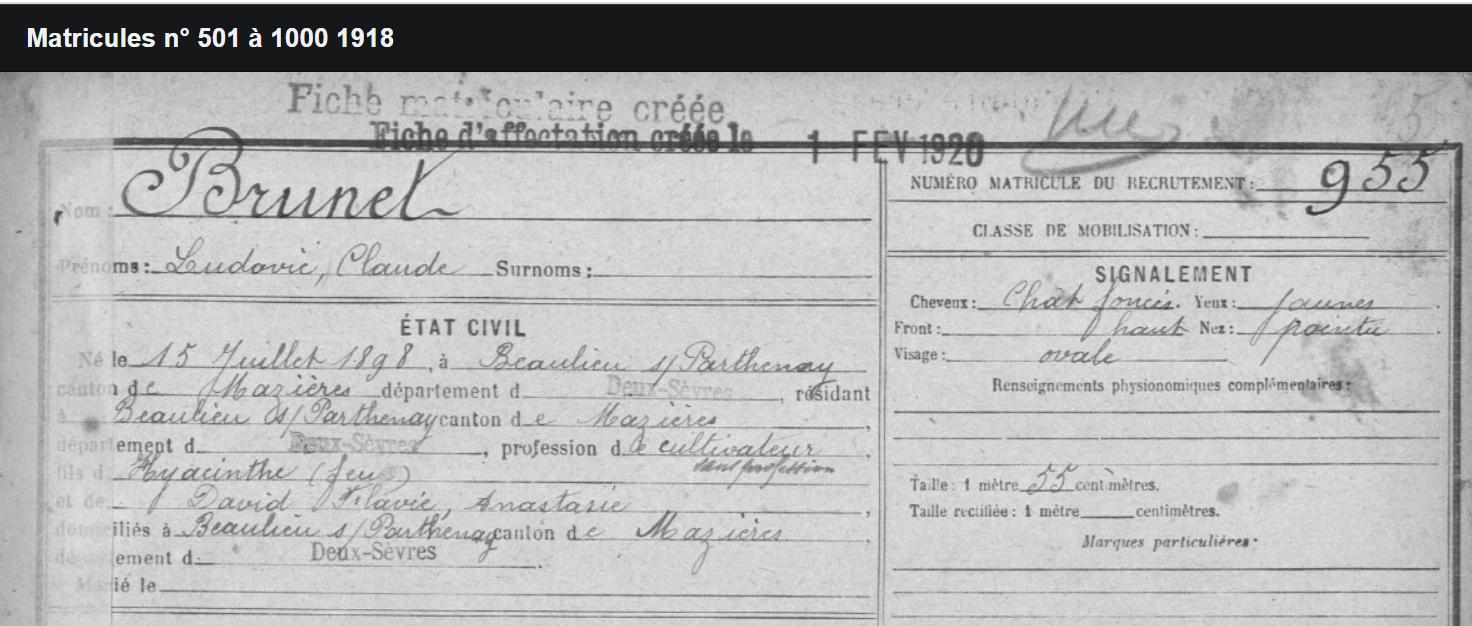 Matricules n° 501 à 1000 1918
Fiche matriculaire créée
Fiche d'affectation créée le 1 FEV 1920
Vu
Nom : Brunet
NUMÉRO MATRICULE DU RECRUTEMENT : 955
CLASSE DE MOBILISATION :
Prénoms : Ludovic, Claude Surnoms :
SIGNALEMENT
Cheveux : Chat foncés. Yeux : jaunes
Front : haut Nez : pointu
Visage : ovale
Renseignements physionomiques complémentaires :
Taille : 1 mètre 55 centimètres.
Taille rectifiée : 1 mètre centimètres.
Marques particulières.
ÉTAT CIVIL
Né le 15 Juillet 1898, à Beaulieu s/ Parthenay
canton de Mazières département d Deux-Sèvres, résidant
à Beaulieu s/ Parthenay canton de Mazières,
département d Deux-Sèvres, profession de cultivateur,
fils d Hyacinthe (feu) sans profession
et de David Flavie, Anastasie,
domiciliés à Beaulieu s/ Parthenay canton de Mazières,
département d Deux-Sèvres.
Marié le